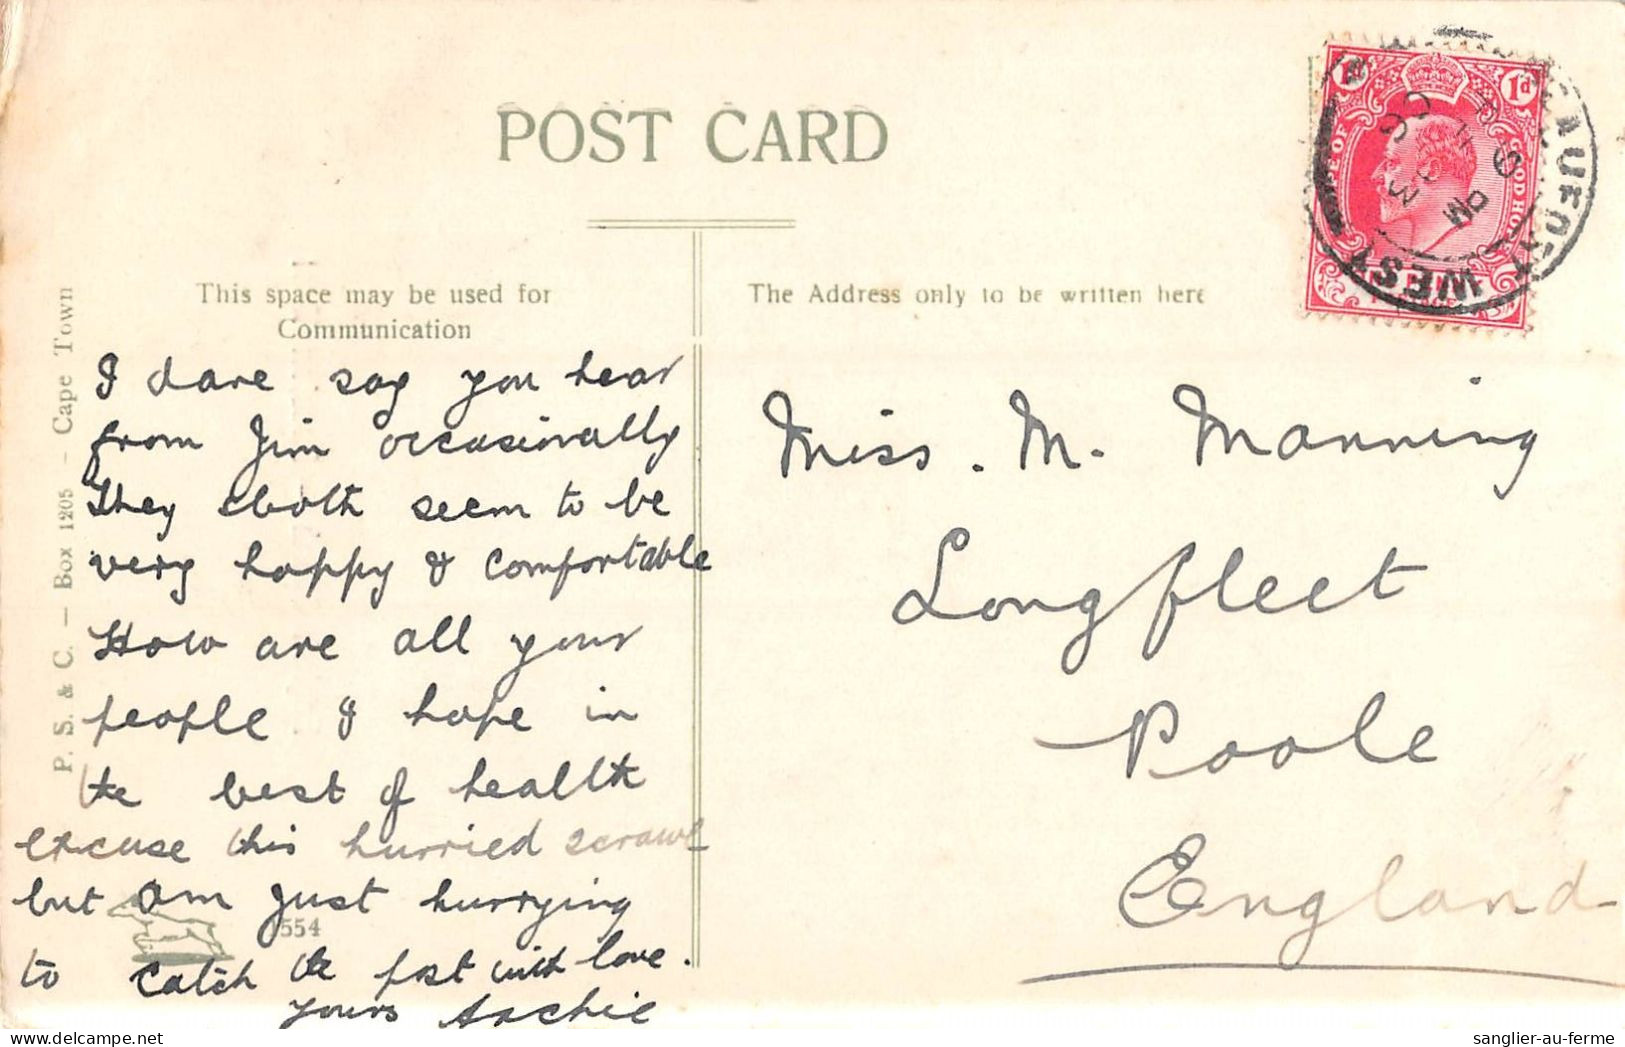 POST CARD
This space may be used for
Communication
The Address only to be written here
P. S. & C. — Box 1205 - Cape Town
I dare say you hear
from Jim occasionally
they both seem to be
very happy & comfortable
How are all your
people I hope in
the best of health
excuse this hurried scrawl
but am just hurrying
to catch the post with love.
yours Archie
554
Miss. M. Manning
Longfleet
Poole
England
1d 1d
WEST
PM
sanglier-au-ferme